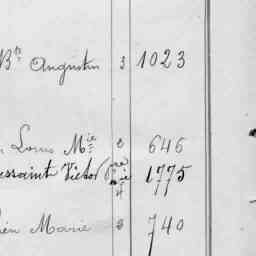 Bte Augustin 3 1023
Louis Mie 2 646
Toussaint Victor 4 1775
Marie 3 740